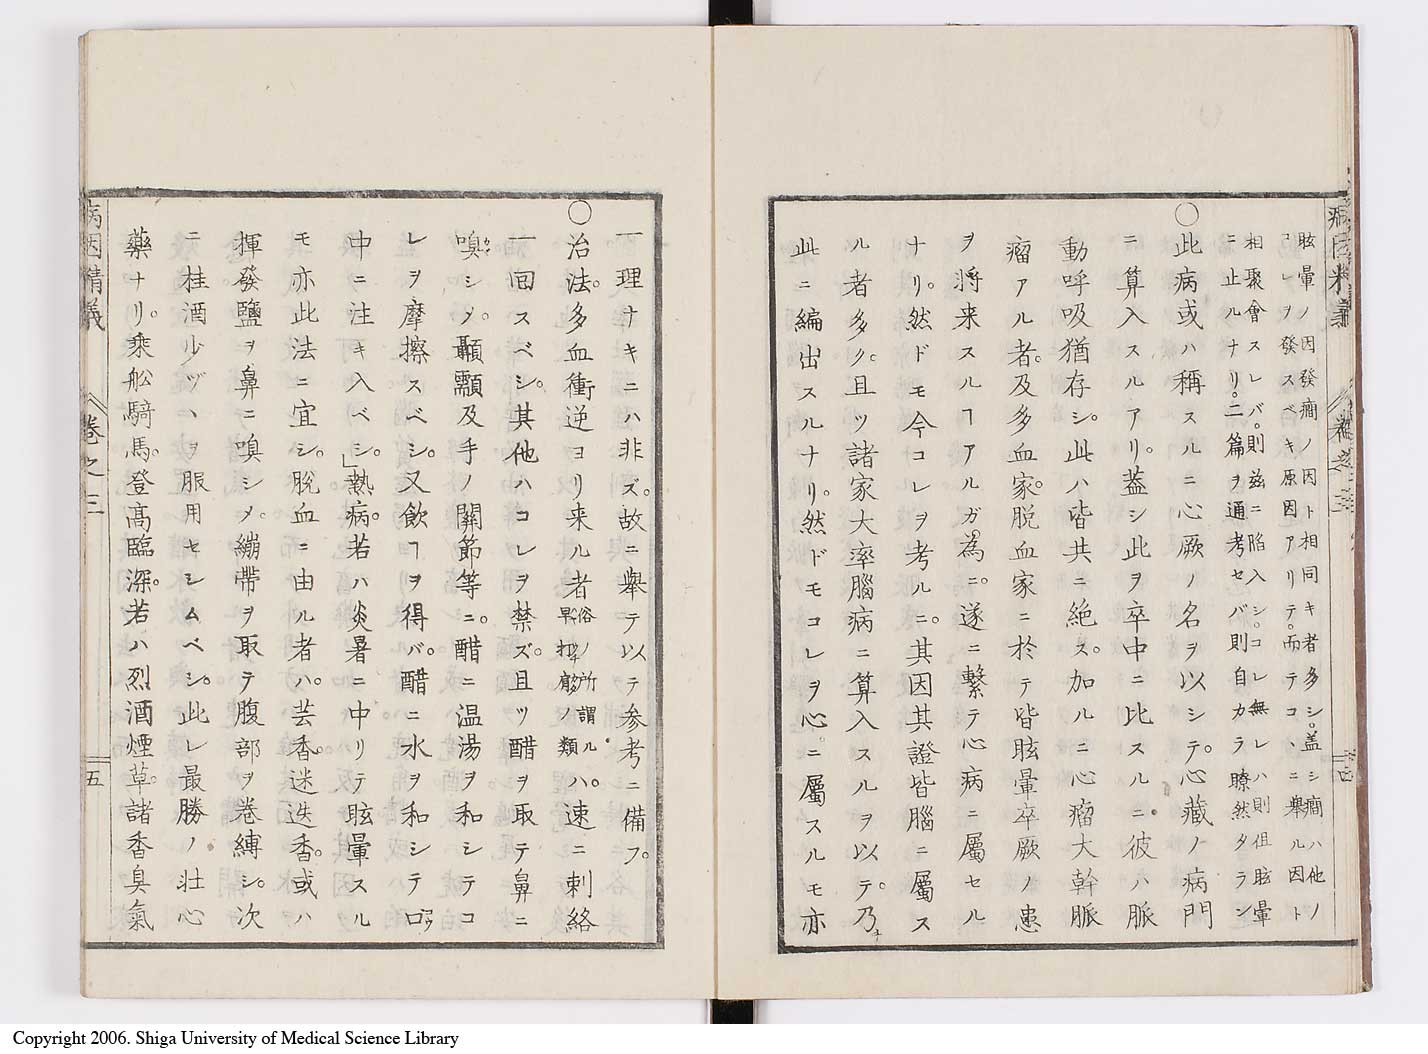 眩暈ノ因發癇ノ因ト相同キ者多シ。蓋シ癇ハ他ノ
コレヲ發スベキ原因アリテ。而テコヽニ舉ル因ト
相聚會スレバ。則茲ニ陷入シ。コレ無レハ則但眩暈
ニ止ルナリ。二篇ヲ通考セバ則自カラ瞭然タラン
○此病或ハ稱スルニ心厥ノ名ヲ以シテ。心藏ノ病門
ニ算入スルアリ。蓋シ此ヲ卒中ニ比スルニ彼ハ脈
動呼吸猶存シ。此ハ皆共ニ絶ス。加ルニ心瘤大幹脈
瘤アル者。及多血家。脱血家ニ於テ皆眩暈卒厥ノ患
ヲ將来スルヿアルガ。為ニ。遂ニ繫テ心病ニ屬セル
ナリ。然ドモ今コレヲ考ルニ。其因其證皆腦ニ屬ス
ル者多ク。且ツ諸家大率腦病ニ算入スルヲ以テ。乃チ
此ニ編出スルナリ。然ドモコレヲ心ニ屬スルモ亦
一理ナキニハ非ズ。故ニ舉テ以テ参考ニ備フ。
○治法。多血衝逆ヨリ来ル者俗ノ所謂ル。早打肩ノ類ハ。速ニ刺絡
一回スベシ。其他ハコレヲ禁ズ。且ツ醋ヲ取テ鼻ニ
嗅カヽシメ。顳顬及手ノ關節等ニ。醋ニ温湯ヲ和シテコ
レヲ摩擦スベシ。又飲ヿヲ得バ。醋ニ水ヲ和シテ口
中ニ注キ入ベシ。」熱病。若ハ炎暑ニ中リテ眩暈スル
モ亦此法ニ宜シ。脱血ニ由ル者ハ。芸香。迷迭香。或ハ
揮發鹽ヲ鼻ニ嗅シメ。繃帶ヲ取テ腹部ヲ卷縛シ。次
ニ桂酒少ヅヽヲ服用セシムベシ。此レ最勝ノ壯心
藥ナリ。乘舩騎馬。登高臨深。若ハ烈酒煙草。諸香臭氣
病因精義
卷之三
五
Copyright 2006. Shiga University of Medical Science Library